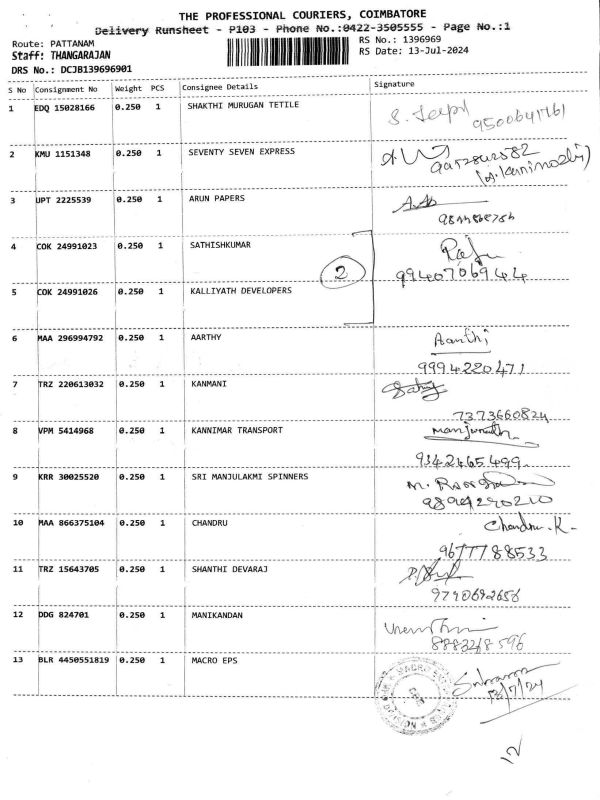 THE PROFESSIONAL COURIERS, COIMBATORE
Delivery Runsheet - P103 - Phone No.:0422-3505555 - Page No.:1
Route: PATTANAM RS No.: 1396969
Staff: THANGARAJAN RS Date: 13-Jul-2024
DRS No.: DCJB139696901
S No Consignment No Weight PCS Consignee Details Signature
1 EDQ 15028166 0.250 1 SHAKTHI MURUGAN TETILE
9500641761
2 KMU 1151348 0.250 1 SEVENTY SEVEN EXPRESS
3 UPT 2225539 0.250 1 ARUN PAPERS
4 COK 24991023 0.250 1 SATHISHKUMAR Raju
2 9940706944
5 COK 24991026 0.250 1 KALLIYATH DEVELOPERS
6 MAA 296994792 0.250 1 AARTHY Aarthi
9994220471
7 TRZ 220613032 0.250 1 KANMANI
7373660824
8 VPM 5414968 0.250 1 KANNIMAR TRANSPORT Manjunath
9342465499
9 KRR 30025520 0.250 1 SRI MANJULAKMI SPINNERS
9894290210
10 MAA 866375104 0.250 1 CHANDRU Chandru.K-
9677788533
11 TRZ 15643705 0.250 1 SHANTHI DEVARAJ
9790692656
12 DDG 824701 0.250 1 MANIKANDAN
8883268596
13 BLR 4450551819 0.250 1 MACRO EPS
13/7/24
12